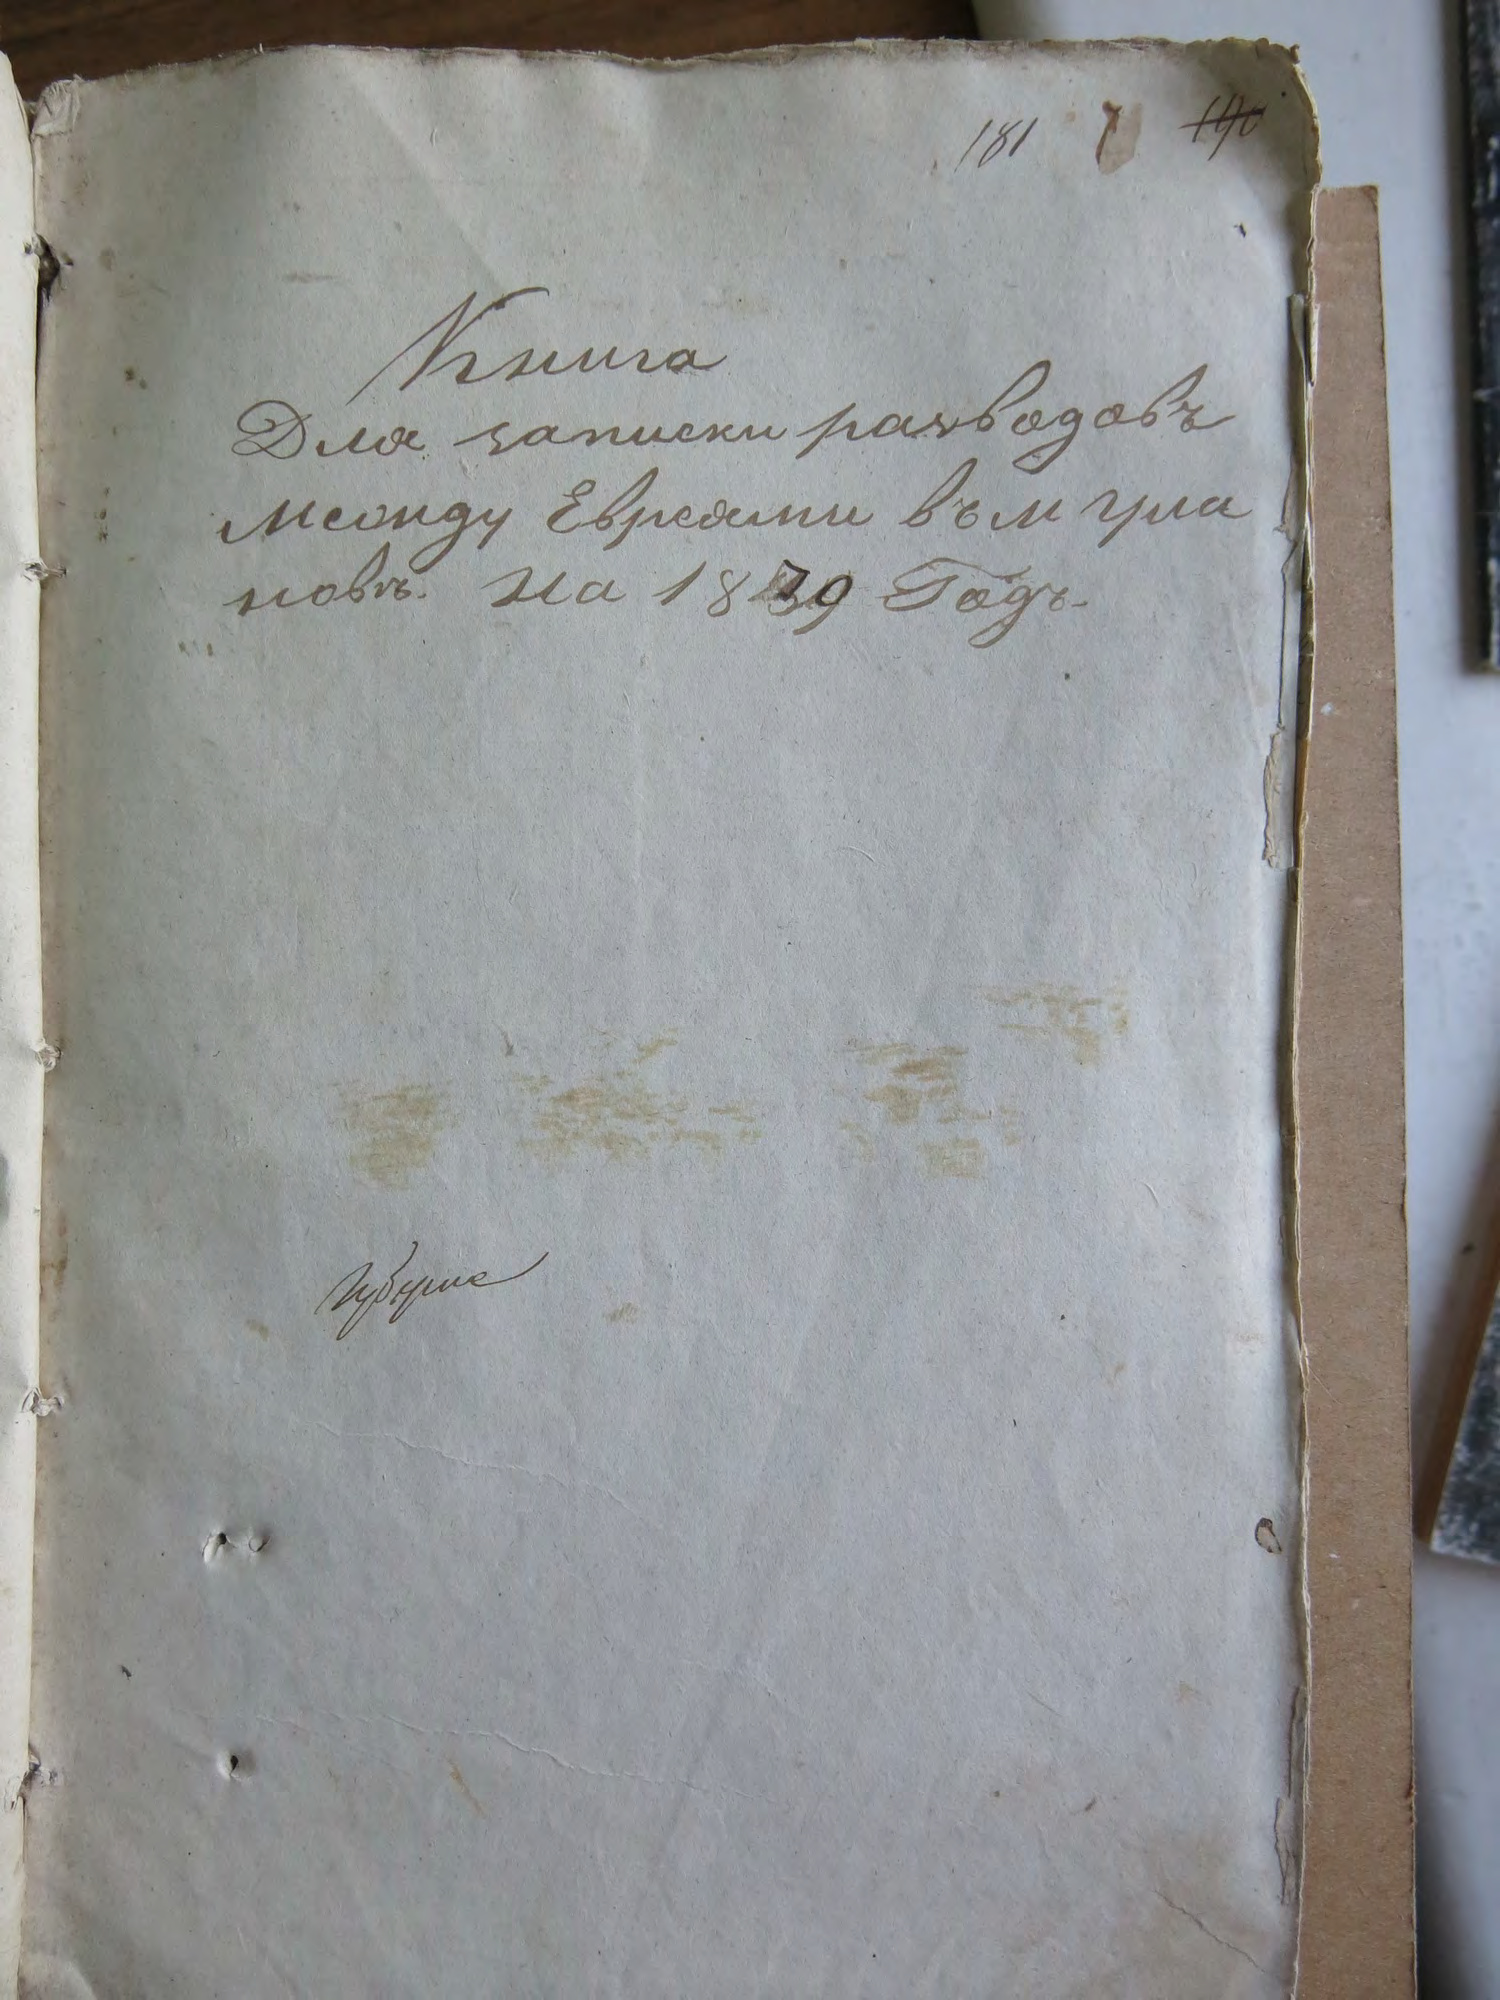 181 140
Книга
Для записки разводовъ
Между Евреями въ м Ула
новъ. на 1839 Годъ.